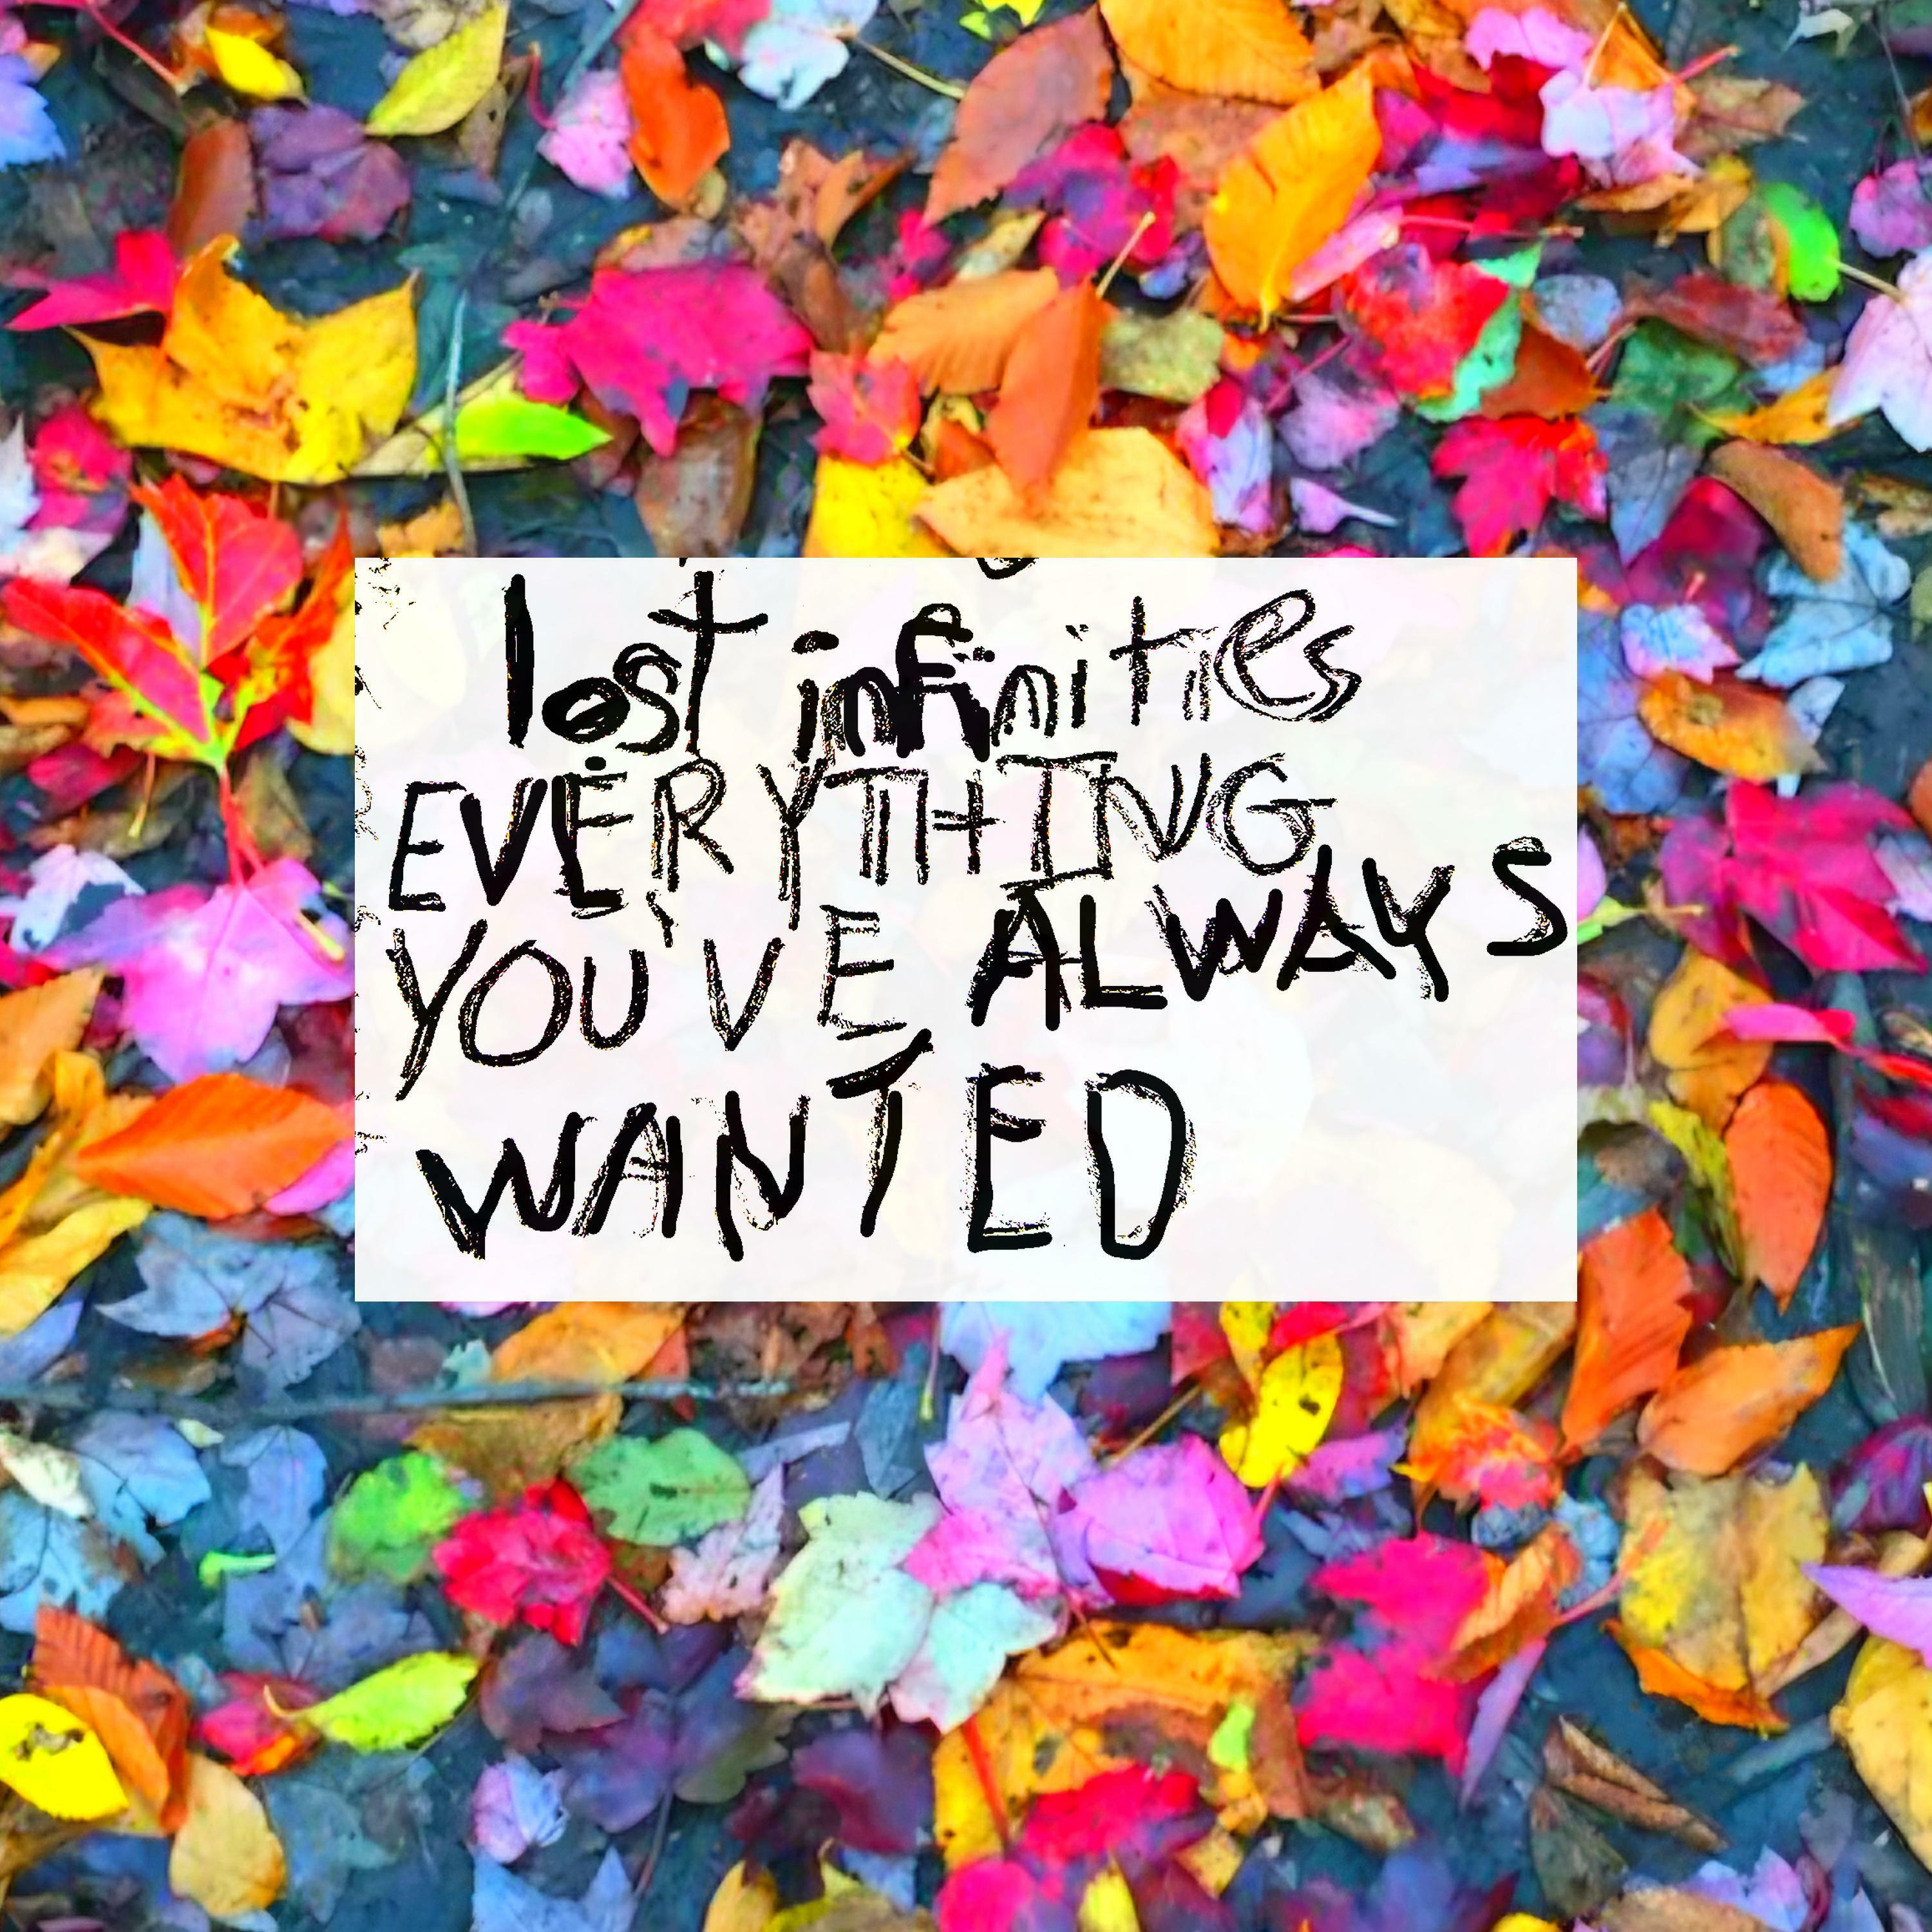 lost infinities
EVERYTHING
YOU'VE ALWAYS
WANTED